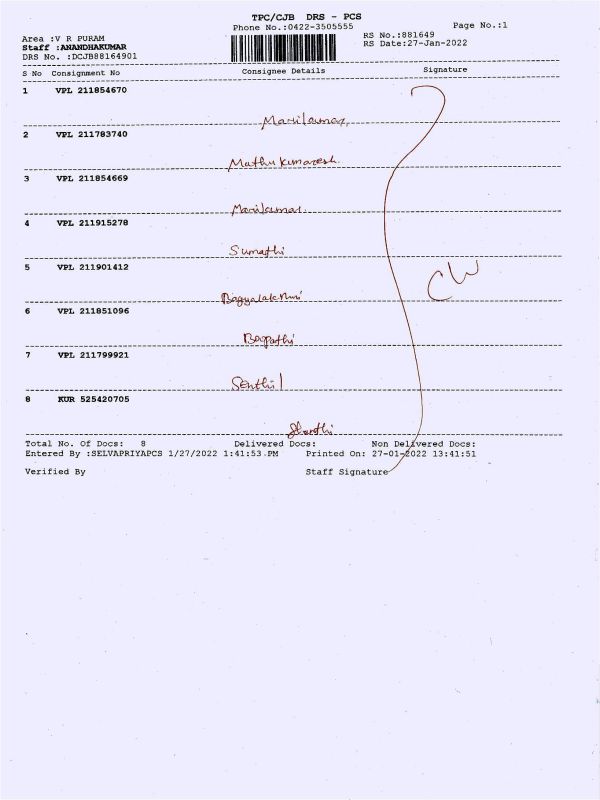 TPC/CJB DRS - PCS
Phone No.:0422-3505555
Page No.:1
Area :V R PURAM
RS No:881649
Staff :ANANDHAKUMAR
RS Date:27-Jan-2022
DRS No. :DCJB88164901
S No Consignment No Consignee Details Signature
1 VPL 211854670
Marikumar
2 VPL 211783740
Muthukumaresh
3 VPL 211854669
Marikumar
4 VPL 211915278
Sumathi
5 VPL 211901412
Bagyalakshmi
6 VPL 211851096
Bagpathi
CW
7 VPL 211799921
Senthil
8 KUR 525420705
Total No. Of Docs: 8 Delivered Docs: Non Delivered Docs:
Entered By :SELVAPRIYAPCS 1/27/2022 1:41:53 PM Printed On: 27-01-2022 13:41:51
Verified By Staff Signature